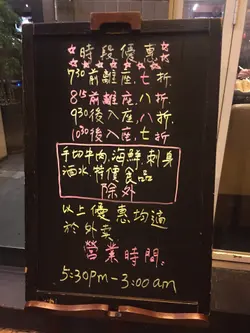 ★時段優惠★
7:30前離座,七折.
8:15前離座,八折.
9:30後入座,八折.
10:30後入座,七折
手切牛肉,海鮮,刺身
酒水,特價食品
除外
以上優惠均適
於外卖
營業時間:
5:30pm-3:00am